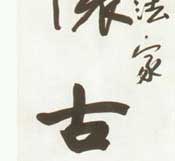 法家
古